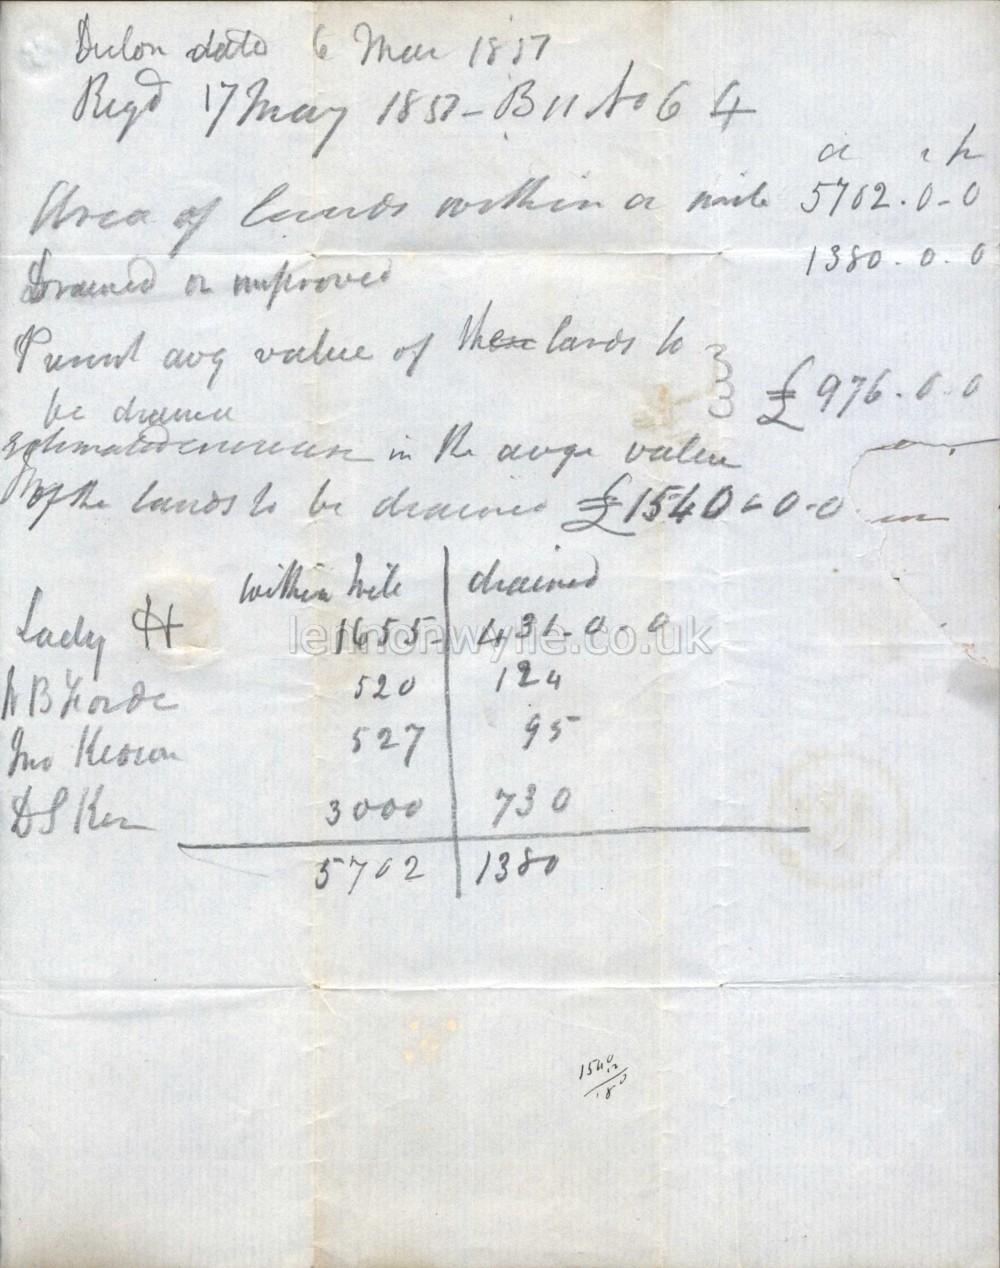 date 6 Mar 1857
Regd 17 May 1857 - B 11 No 64
a r p
Area of lands within a mile 5702.0-0
Drained or improved 1380.0.0
Present avg value of these lands to
be drained £976.0.0
Estimated increase in the avge value
of the lands to be drained £1540-0-0
within mile drained
Lady H 1655 431-0-0
Forde 520 124
Jno Keown 527 95
D S Ker 3000 730
5702 1380
1540
lennonwylie.co.uk